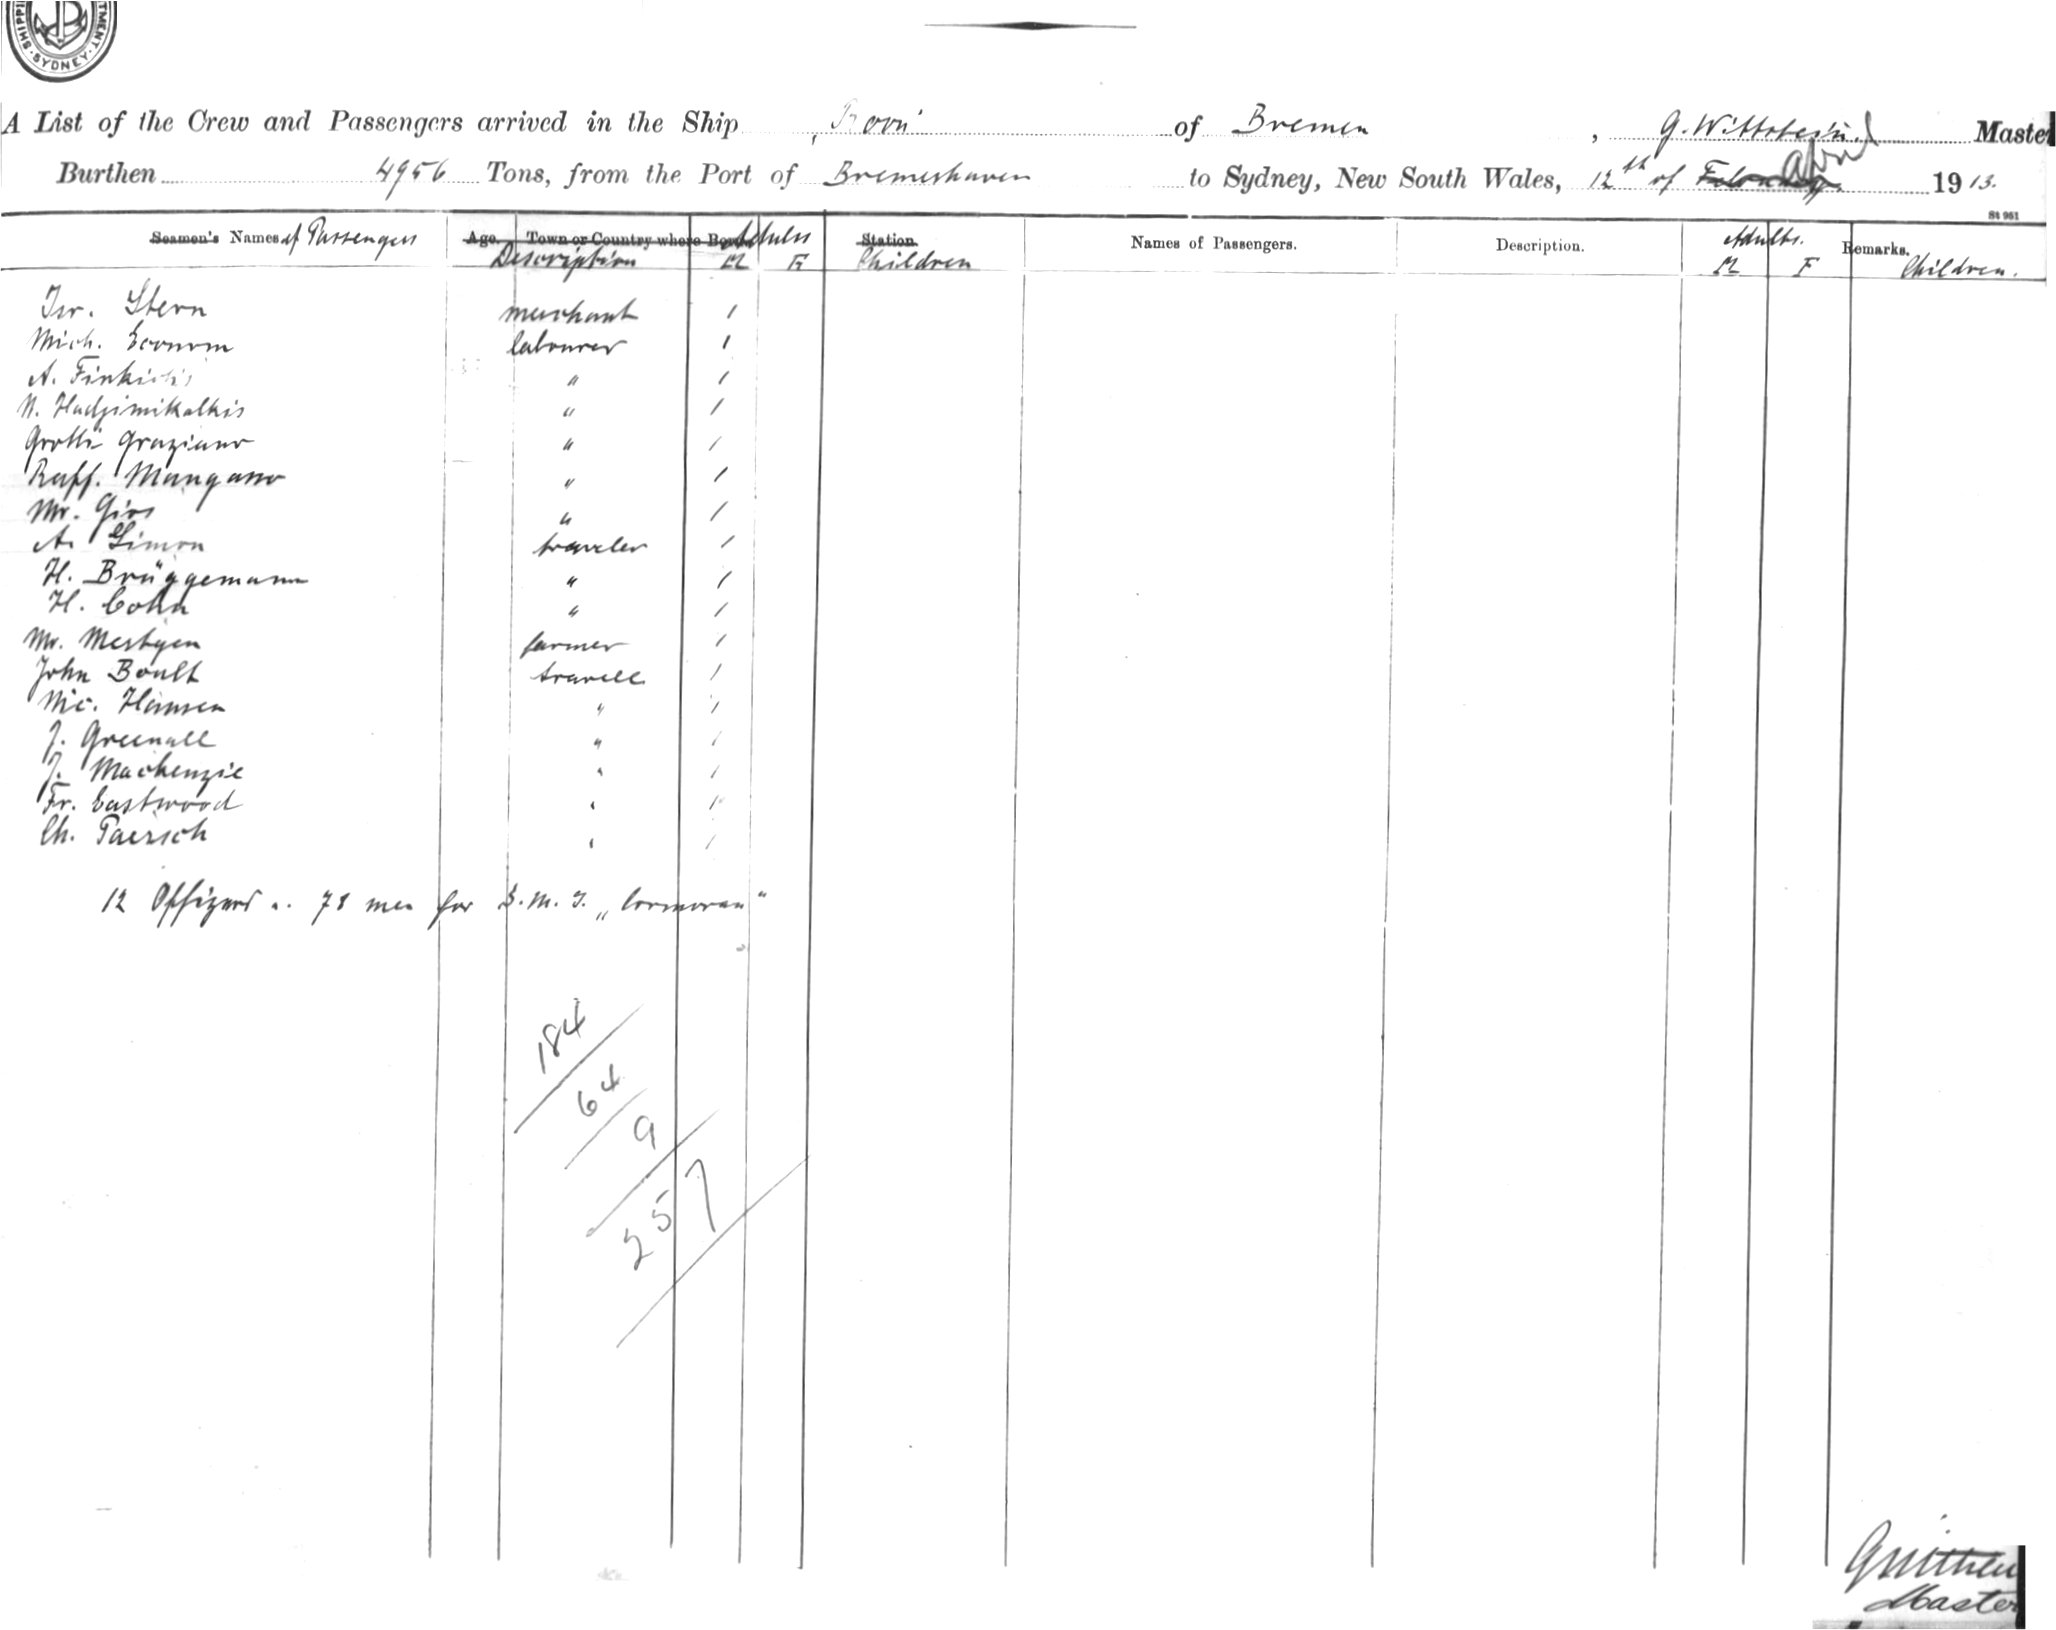 SHIPPI TMENT. SYDNEY
A List of the Crew and Passengers arrived in the Ship Roon of Bremen, G. Wittstein Master
Burthen 4956 Tons, from the Port of Bremerhaven to Sydney, New South Wales, 12th of February April 1913.
St 961
Seamen's Names of Passengers Age. Town or Country where Born Adults Station. Names of Passengers. Description. Adults. Remarks.
Description M F Children M F Children.
Isr. Stern merchant 1
Mich. labourer 1
A. " 1
N. Hadjimikalkis " 1
Grotti Graziano " 1
Raff. Mangano " 1
Mr. Gios " 1
A. Simon traveler 1
H. Brüggemann " 1
H. Cohn " 1
Mr. Mestgen farmer 1
John Boult travell 1
Nic. Hansen " 1
J. Greenall " 1
J. Mackenzie " 1
Fr. Eastwood " 1
Ch. Paersch " 1
12 Offizers u. 78 men for S.M.S. „Cormoran"
184
64
9
257
Master